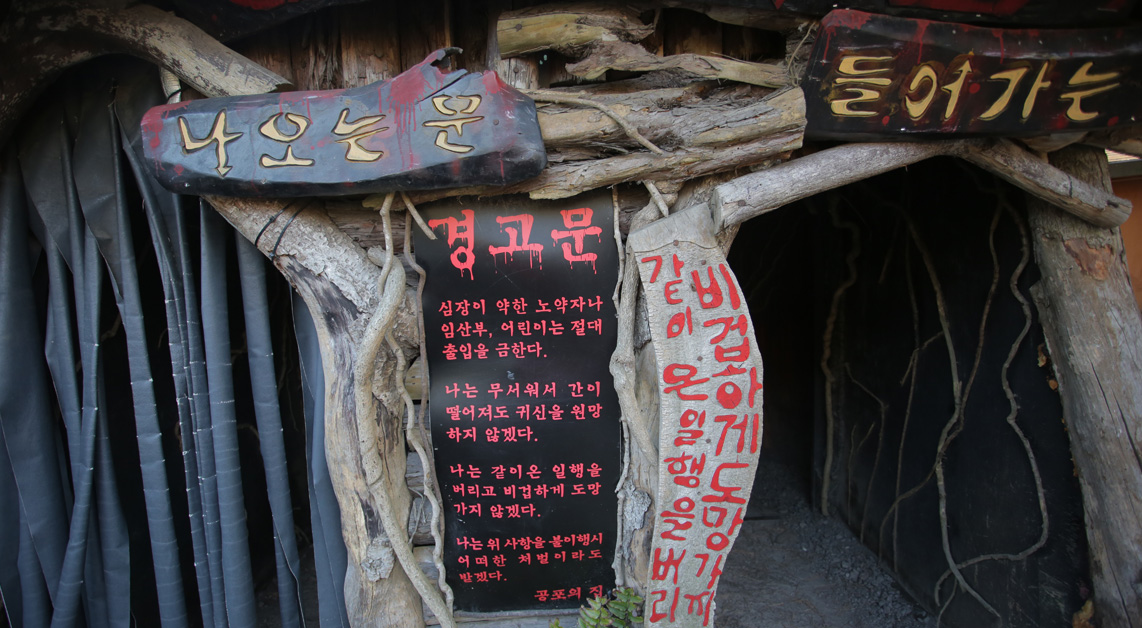 나오는문
들어가는
경고문
심장이 약한 노약자나
임산부, 어린이는 절대
출입을 금한다.
나는 무서워서 간이
떨어져도 귀신을 원망
하지 않겠다.
나는 같이온 일행을
버리고 비겁하게 도망
가지 않겠다.
나는 위 사항을 불이행시
어떠한 처벌이라도
받겠다.
공포의 집
같이 온 일행을 버리
비겁하게 도망가지